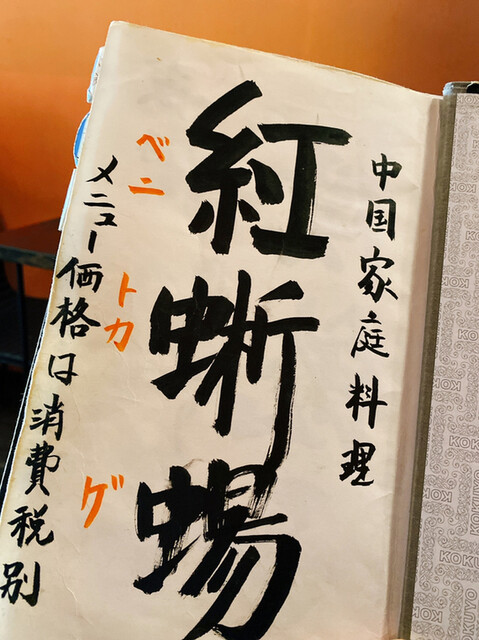 中国家庭料理
紅蜥蜴
ベニ トカ ゲ
メニュー価格は消費税別
KOKUYO